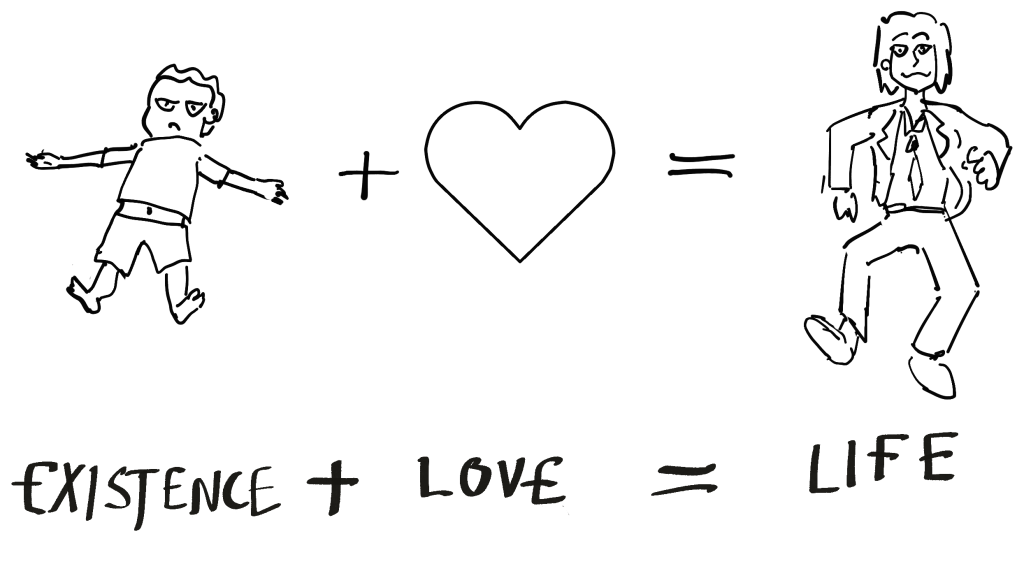 EXISTENCE + LOVE = LIFE